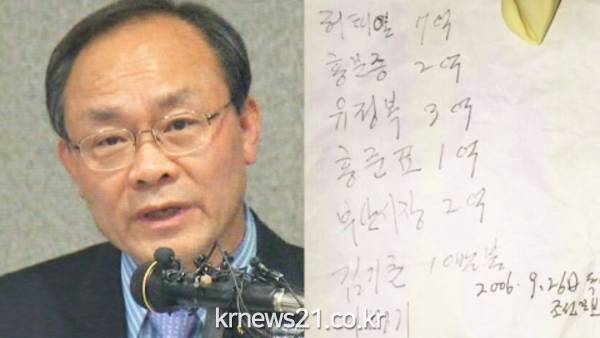 허태열 7억
홍문종 2억
유정복 3억
홍준표 1억
부산시장 2억
김기춘 10만불
2006. 9. 26日
조선일보
krnews21.co.kr